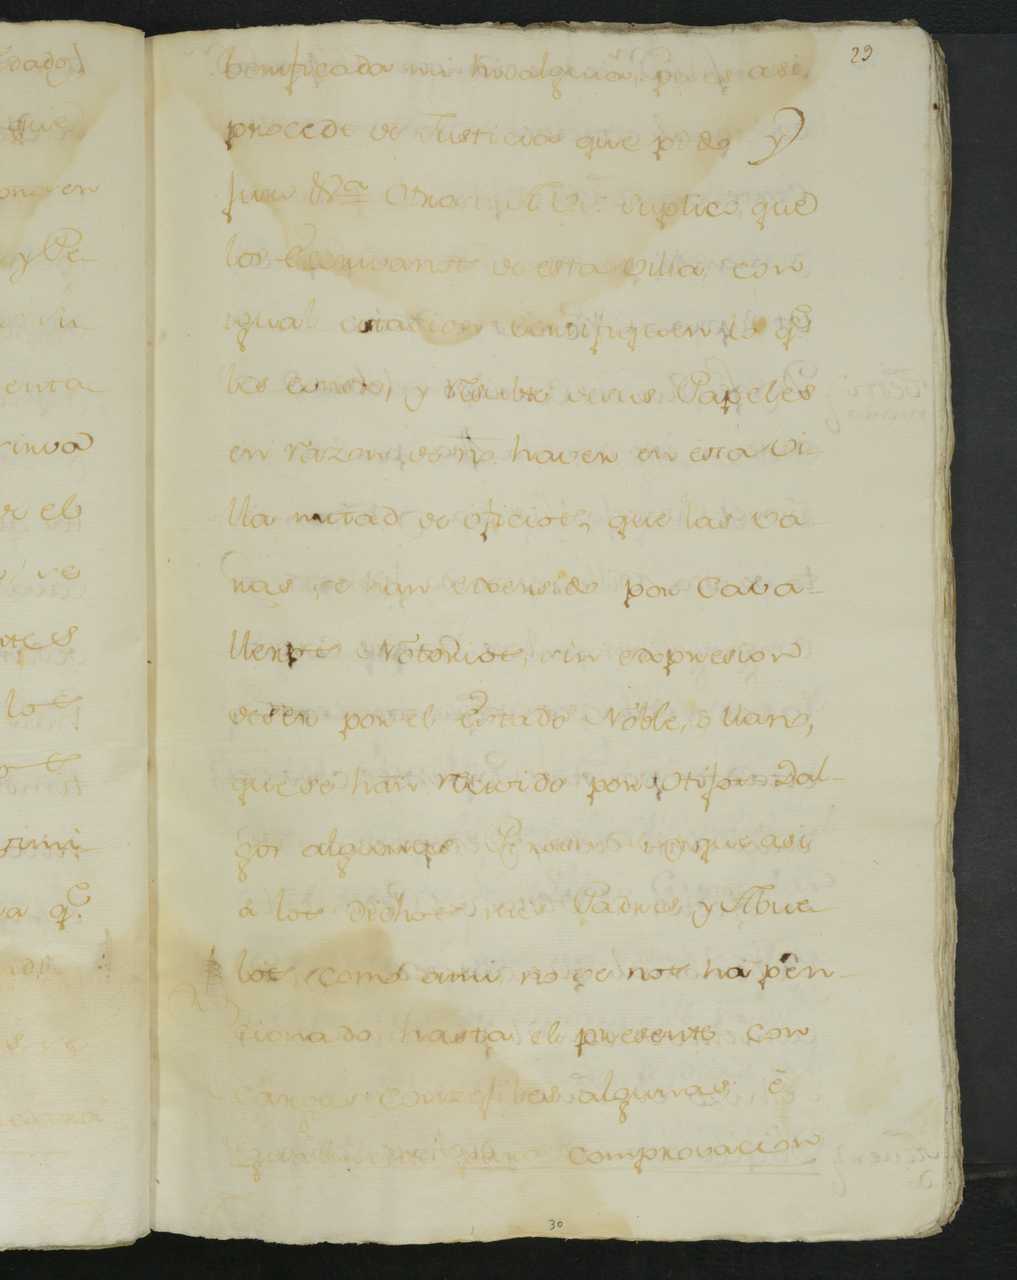 29
berificada mi hidalguia, pues asi
procede de Justicia que pido y
juro &ra Otrosi A Vs. suplico que
los Escrivanos de esta villa, con
igual citacion certifiquen lo q.e
les conste, y resulte de sus Papeles
en razon de no haver en esta Vi-
lla mitad de oficios, que las va-
ras se han exercido por Cava-
lleros Notorios, sin expresion
de ser por el Estado Noble, o llano,
que se han recivido por otifon dal-
gos algunos y que asi
a los dichos mis Padres, y Abue-
los, como a mi no se nos ha pen-
cionado hasta el presente con
cargas conzejiles algunas, è
comprovacion
30